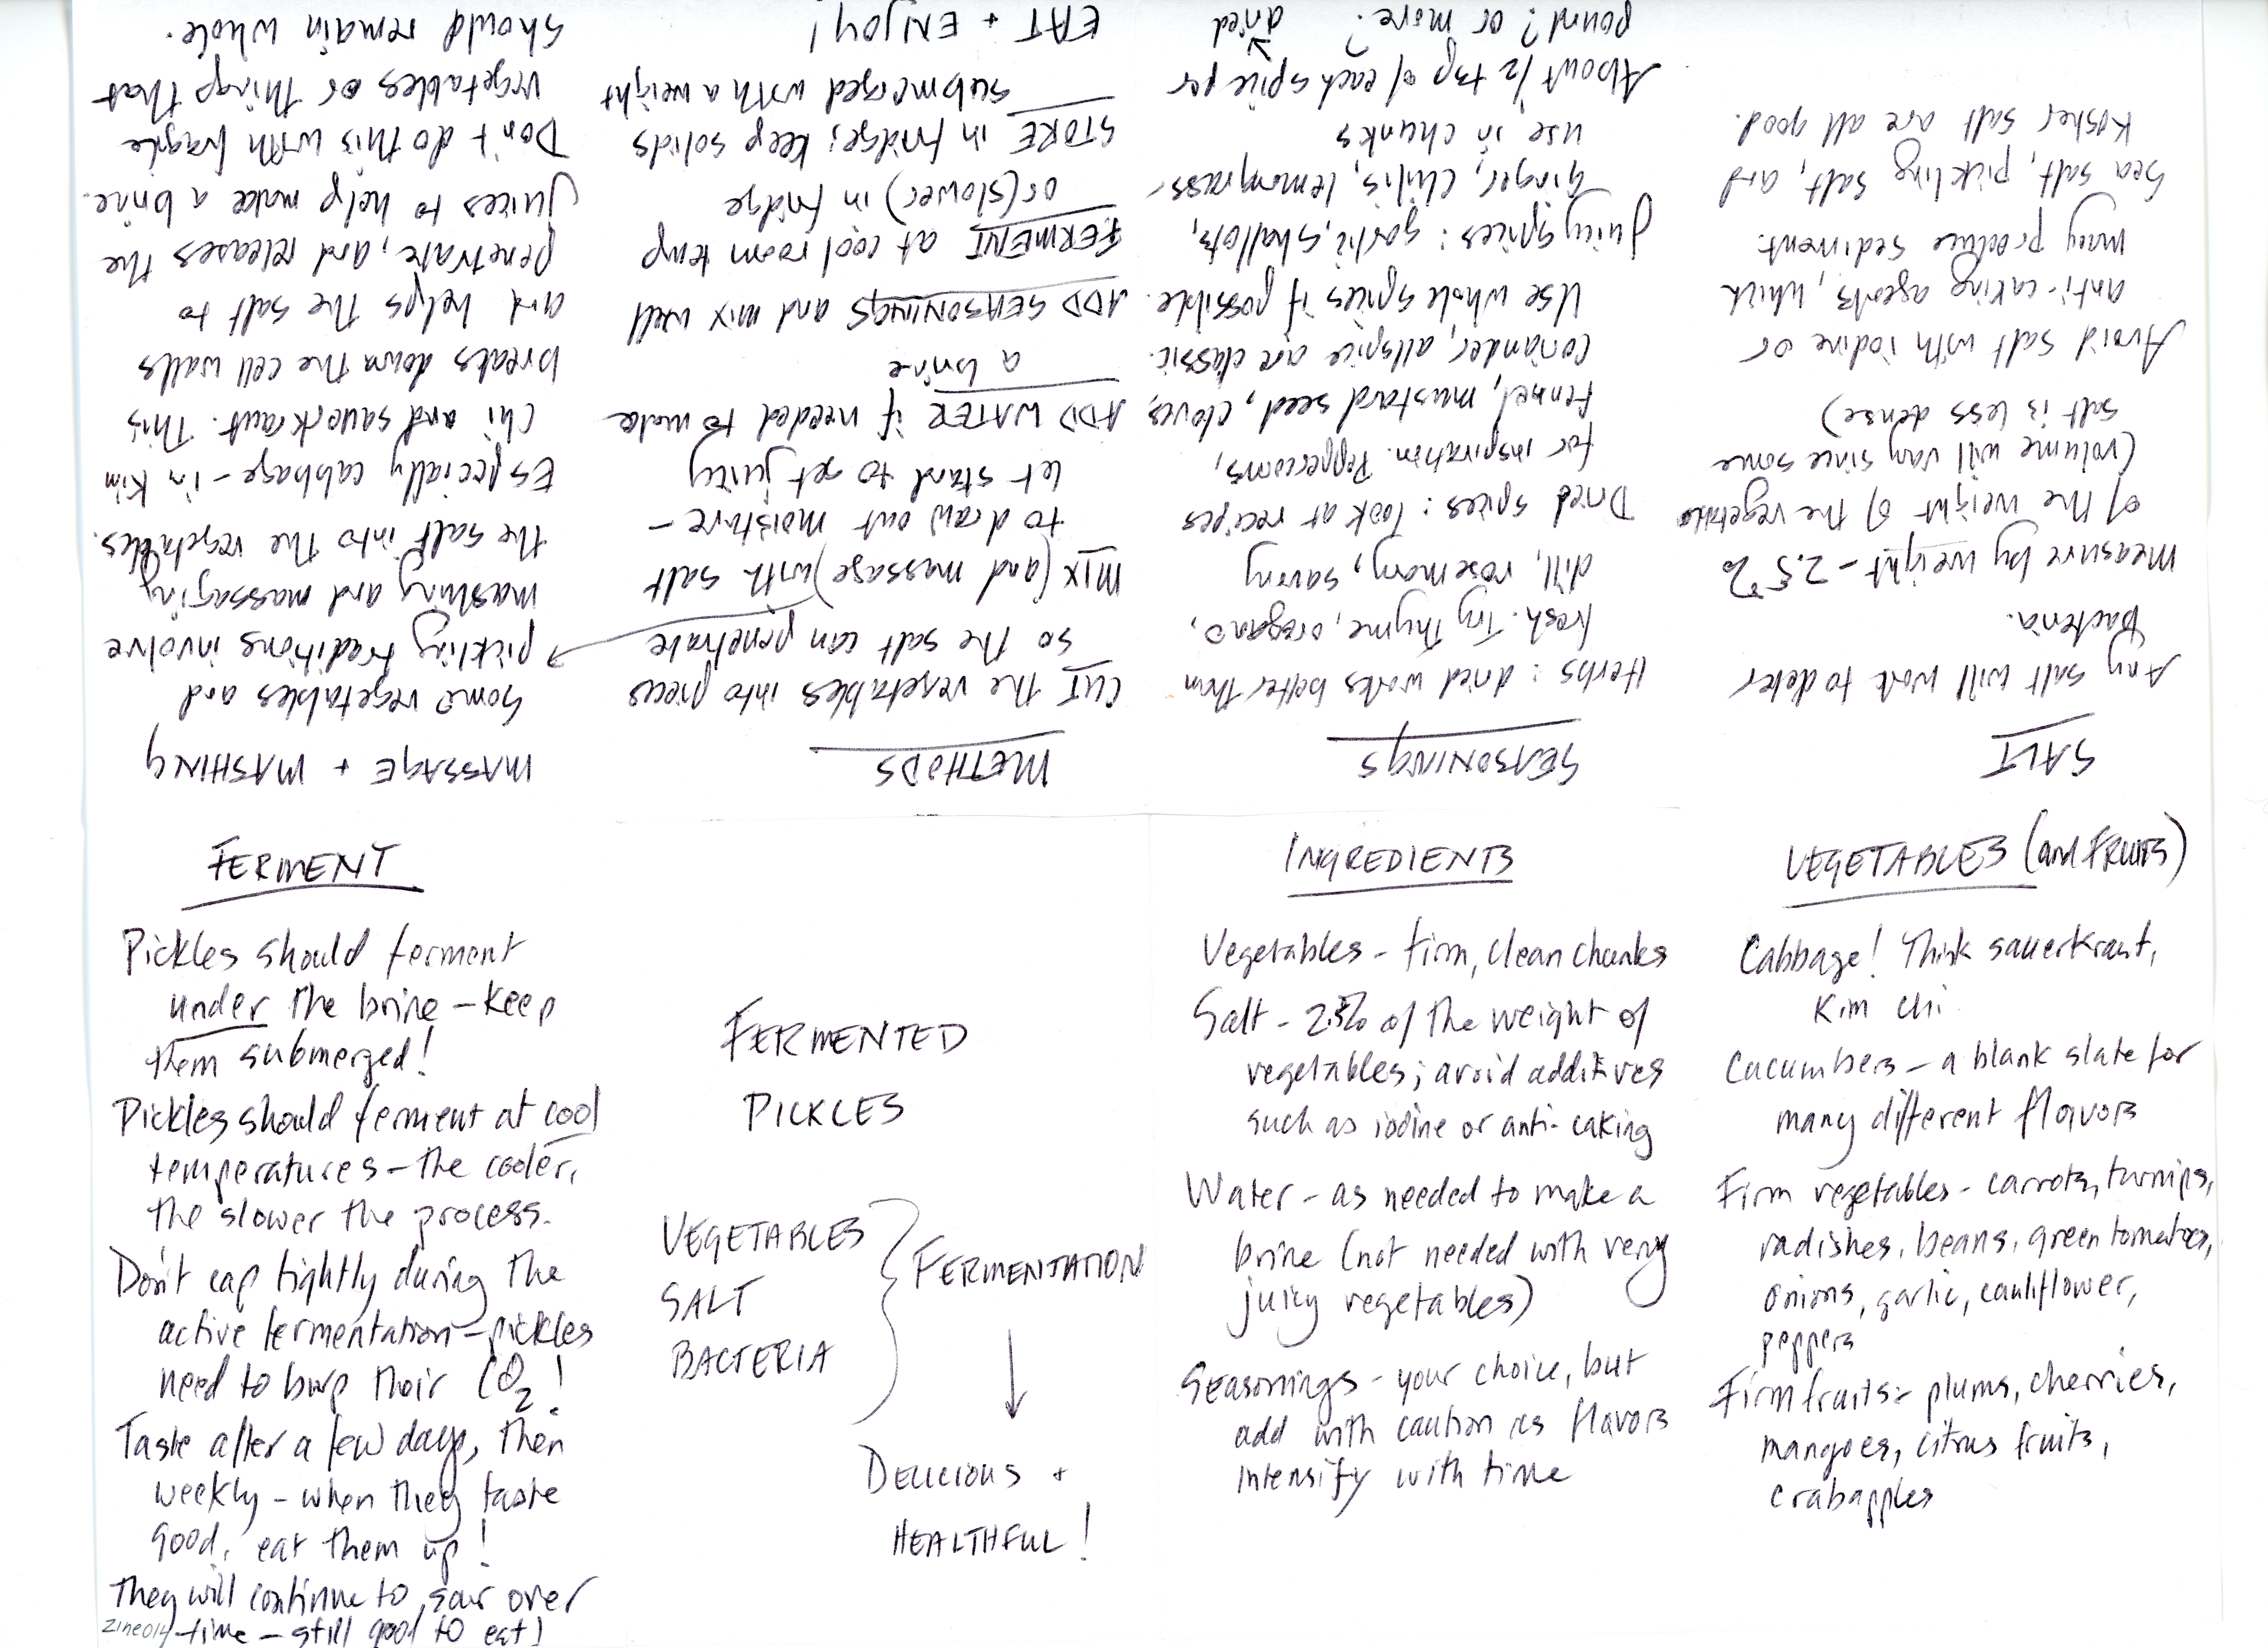 FERMENTED
PICKLES
VEGETABLES
SALT
BACTERIA
FERMENTATION
DELICIOUS +
HEALTHFUL!
INGREDIENTS
Vegetables - firm, clean chunks
Salt - 2.5% of the weight of
vegetables; avoid additives
such as iodine or anti-caking
Water - as needed to make a
brine (not needed with very
juicy vegetables)
Seasonings - your choice, but
add with caution as flavors
intensify with time
VEGETABLES (and FRUITS)
Cabbage! Think sauerkraut,
Kim chi
Cucumbers - a blank slate for
many different flavors
Firm vegetables - carrots, turnips,
radishes, beans, green tomatoes,
onions, garlic, cauliflower,
peppers
Firm fruits - plums, cherries,
mangoes, citrus fruits,
crabapples
SALT
Any salt will work to deter
bacteria.
Measure by weight - 2.5%
of the weight of the vegetable
(volume will vary since some
salt is less dense)
Avoid salt with iodine or
anti-caking agents, which
may produce sediment.
Sea salt, pickling salt, and
Kosher salt are all good.
SEASONINGS
Herbs: dried works better than
fresh. Try thyme, oregano,
dill, rosemary, savory
Dried spices: look at recipes
for inspiration. Peppercorns,
fennel, mustard seed, cloves,
coriander, allspice are classic.
Use whole spices if possible.
Juicy spices: garlic, shallots,
ginger, chilis, lemongrass -
use in chunks
About 1/2 tsp of each spice per
pound? or more? dried
METHODS
CUT the vegetables into pieces
so the salt can penetrate
MIX (and massage) with salt
to draw out moisture -
let stand to get juicy
ADD WATER if needed to make
a brine
ADD SEASONINGS and mix well
FERMENT at cool room temp
or (slower) in fridge
STORE in fridge; keep solids
submerged with a weight
EAT + ENJOY!
MASSAGE + MASHING
Some vegetables and
pickling traditions involve
mashing and massaging
the salt into the vegetables.
Especially cabbage - in Kim
chi and sauerkraut. This
breaks down the cell walls
and helps the salt to
penetrate, and releases the
juices to help make a brine.
Don't do this with fragile
vegetables or things that
should remain whole.
FERMENT
Pickles should ferment
under the brine - keep
them submerged!
Pickles should ferment at cool
temperatures - the cooler,
the slower the process.
Don't cap tightly during the
active fermentation - pickles
need to burp their CO2!
Taste after a few days, then
weekly - when they taste
good, eat them up!
They will continue to sour over
time - still good to eat!
zine014